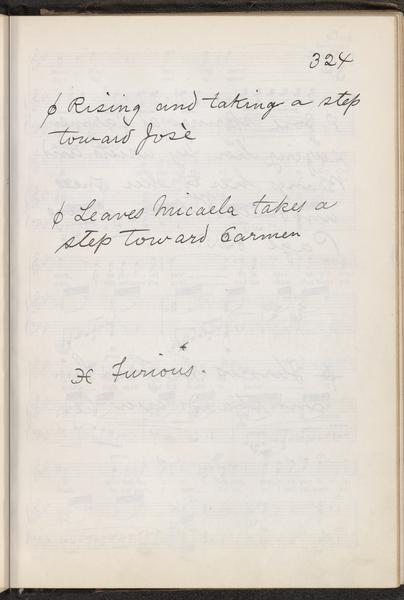 324
ϕ Rising and taking a step
toward Josè
ϕ Leaves Micaela takes a
step toward Carmen
Furious.